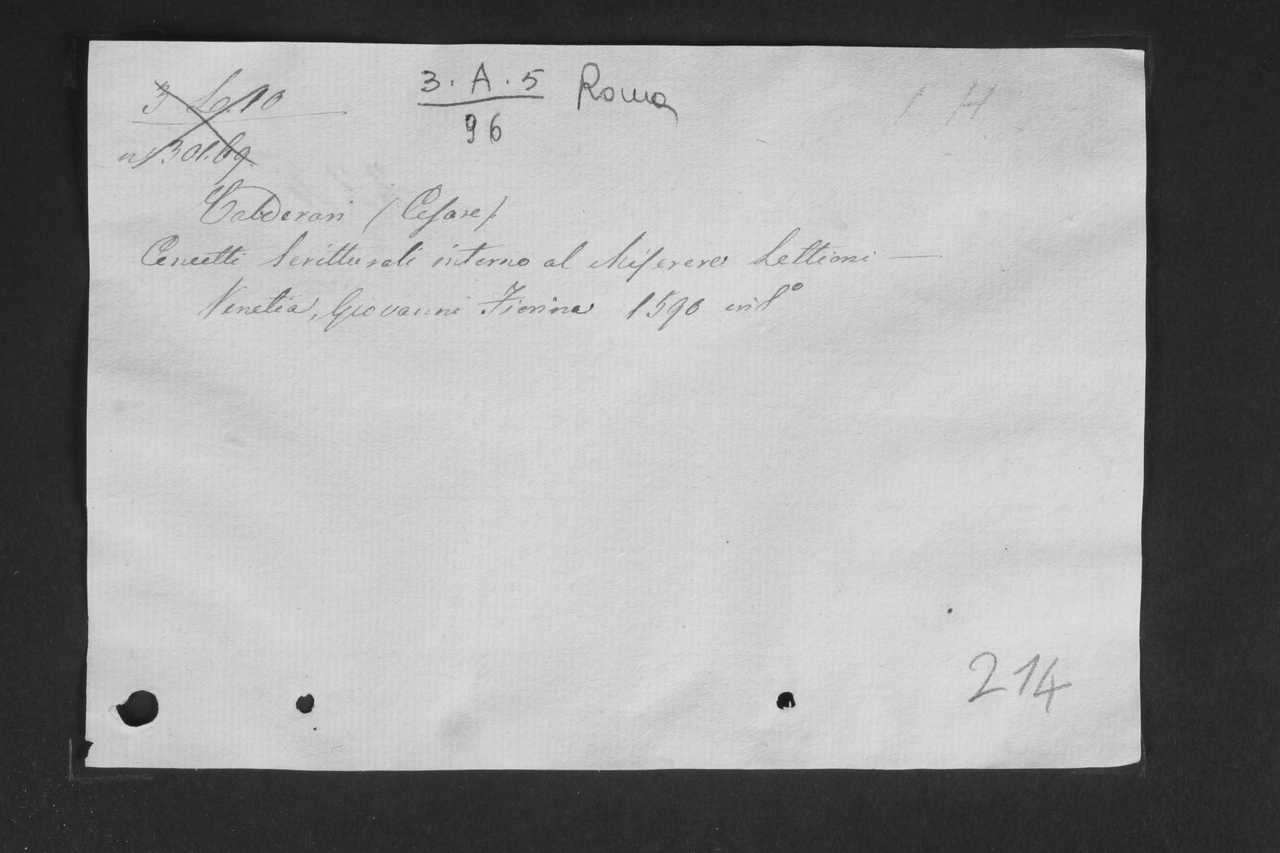 3. A. 5 Roma
96
Calderari (Cesare)
Concetti Scritturali intorno al Miserere Lettioni —
Venetia, Giovanni Fiorina 1590 in 8°
214